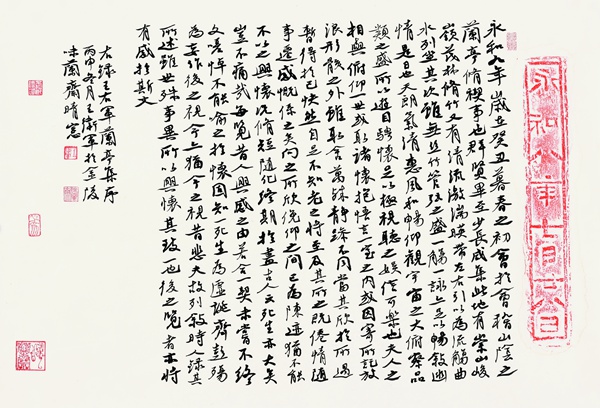 永和九年歲在癸丑暮春之初會於會稽山陰之
蘭亭脩禊事也群賢畢至少長咸集此地有崇山峻
嶺茂林修竹又有清流激湍映帶左右引以為流觴曲
水列坐其次雖無絲竹管弦之盛一觴一詠亦足以暢敘幽
情是日也天朗氣清惠風和暢仰觀宇宙之大俯察品
類之盛所以遊目騁懷足以極視聽之娛信可樂也夫人之
相與俯仰一世或取諸懷抱悟言一室之內或因寄所託放
浪形骸之外雖取舍萬殊靜躁不同當其欣於所遇
暫得於己快然自足不知老之將至及其所之既倦情隨
事遷感慨係之矣向之所欣俛仰之間已為陳迹猶不能
不以之興懷況脩短隨化終期於盡古人云死生亦大矣
豈不痛哉每覽昔人興感之由若合一契未嘗不臨
文嗟悼不能喻之於懷固知一死生為虛誕齊彭殤
為妄作後之視今亦猶今之視昔悲夫故列敘時人錄其
所述雖世殊事異所以興懷其致一也後之覽者亦將
有感於斯文
右錄王右軍蘭亭集序
丙申冬月王衛軍於金陵
味蘭齋晴窗